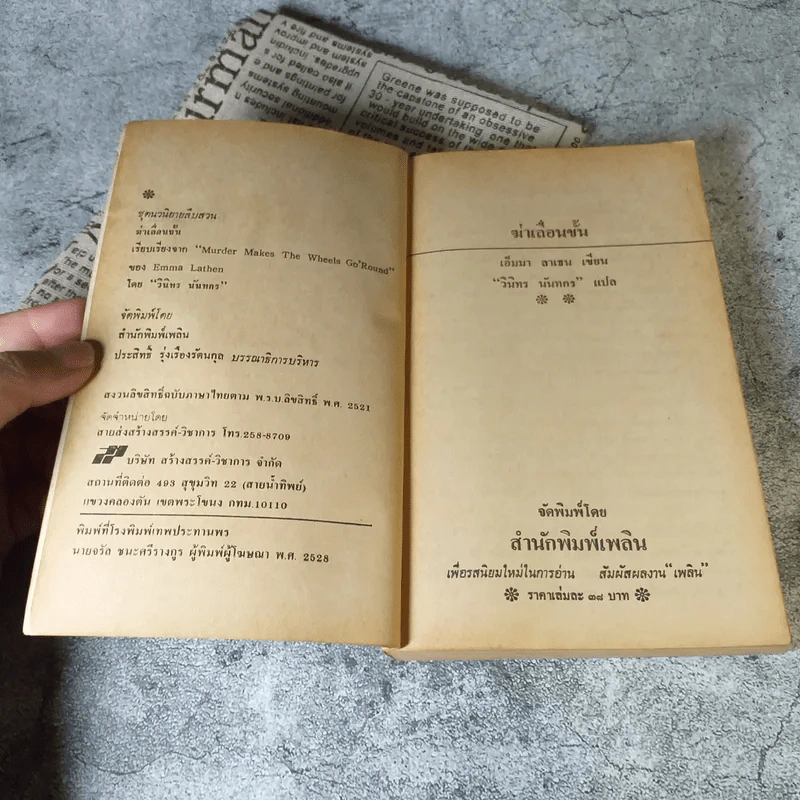 Greene was supposed to be
the capstone of an obsessive
30 - year undertaking, one that
would build on the wide
critical success of the
volumes and
ชุดนวนิยายสืบสวน
ฆ่าเลื่อนขั้น
เรียบเรียงจาก "Murder Makes The Wheels Go'Round"
ของ Emma Lathen
โดย "วินิทร นันทกร"
จัดพิมพ์โดย
สำนักพิมพ์เพลิน
ประสิทธิ์ รุ่งเรืองรัตนกุล บรรณาธิการบริหาร
สงวนลิขสิทธิ์ฉบับภาษาไทยตาม พ.ร.บ.ลิขสิทธิ์ พ.ศ. 2521
จัดจำหน่ายโดย
สายส่งสร้างสรรค์-วิชาการ โทร.258-8709
บริษัท สร้างสรรค์-วิชาการ จำกัด
สถานที่ติดต่อ 493 สุขุมวิท 22 (สายน้ำทิพย์)
แขวงคลองตัน เขตพระโขนง กทม.10110
พิมพ์ที่โรงพิมพ์เทพประทานพร
นายจรัล ชนะศรีรางกูร ผู้พิมพ์ผู้โฆษณา พ.ศ. 2528
ฆ่าเลื่อนขั้น
เอ็มมา ลาเธน เขียน
"วินิทร นันทกร" แปล
จัดพิมพ์โดย
สำนักพิมพ์เพลิน
เพื่อรสนิยมใหม่ในการอ่าน สัมผัสผลงาน "เพลิน"
ราคาเล่มละ ๓๘ บาท